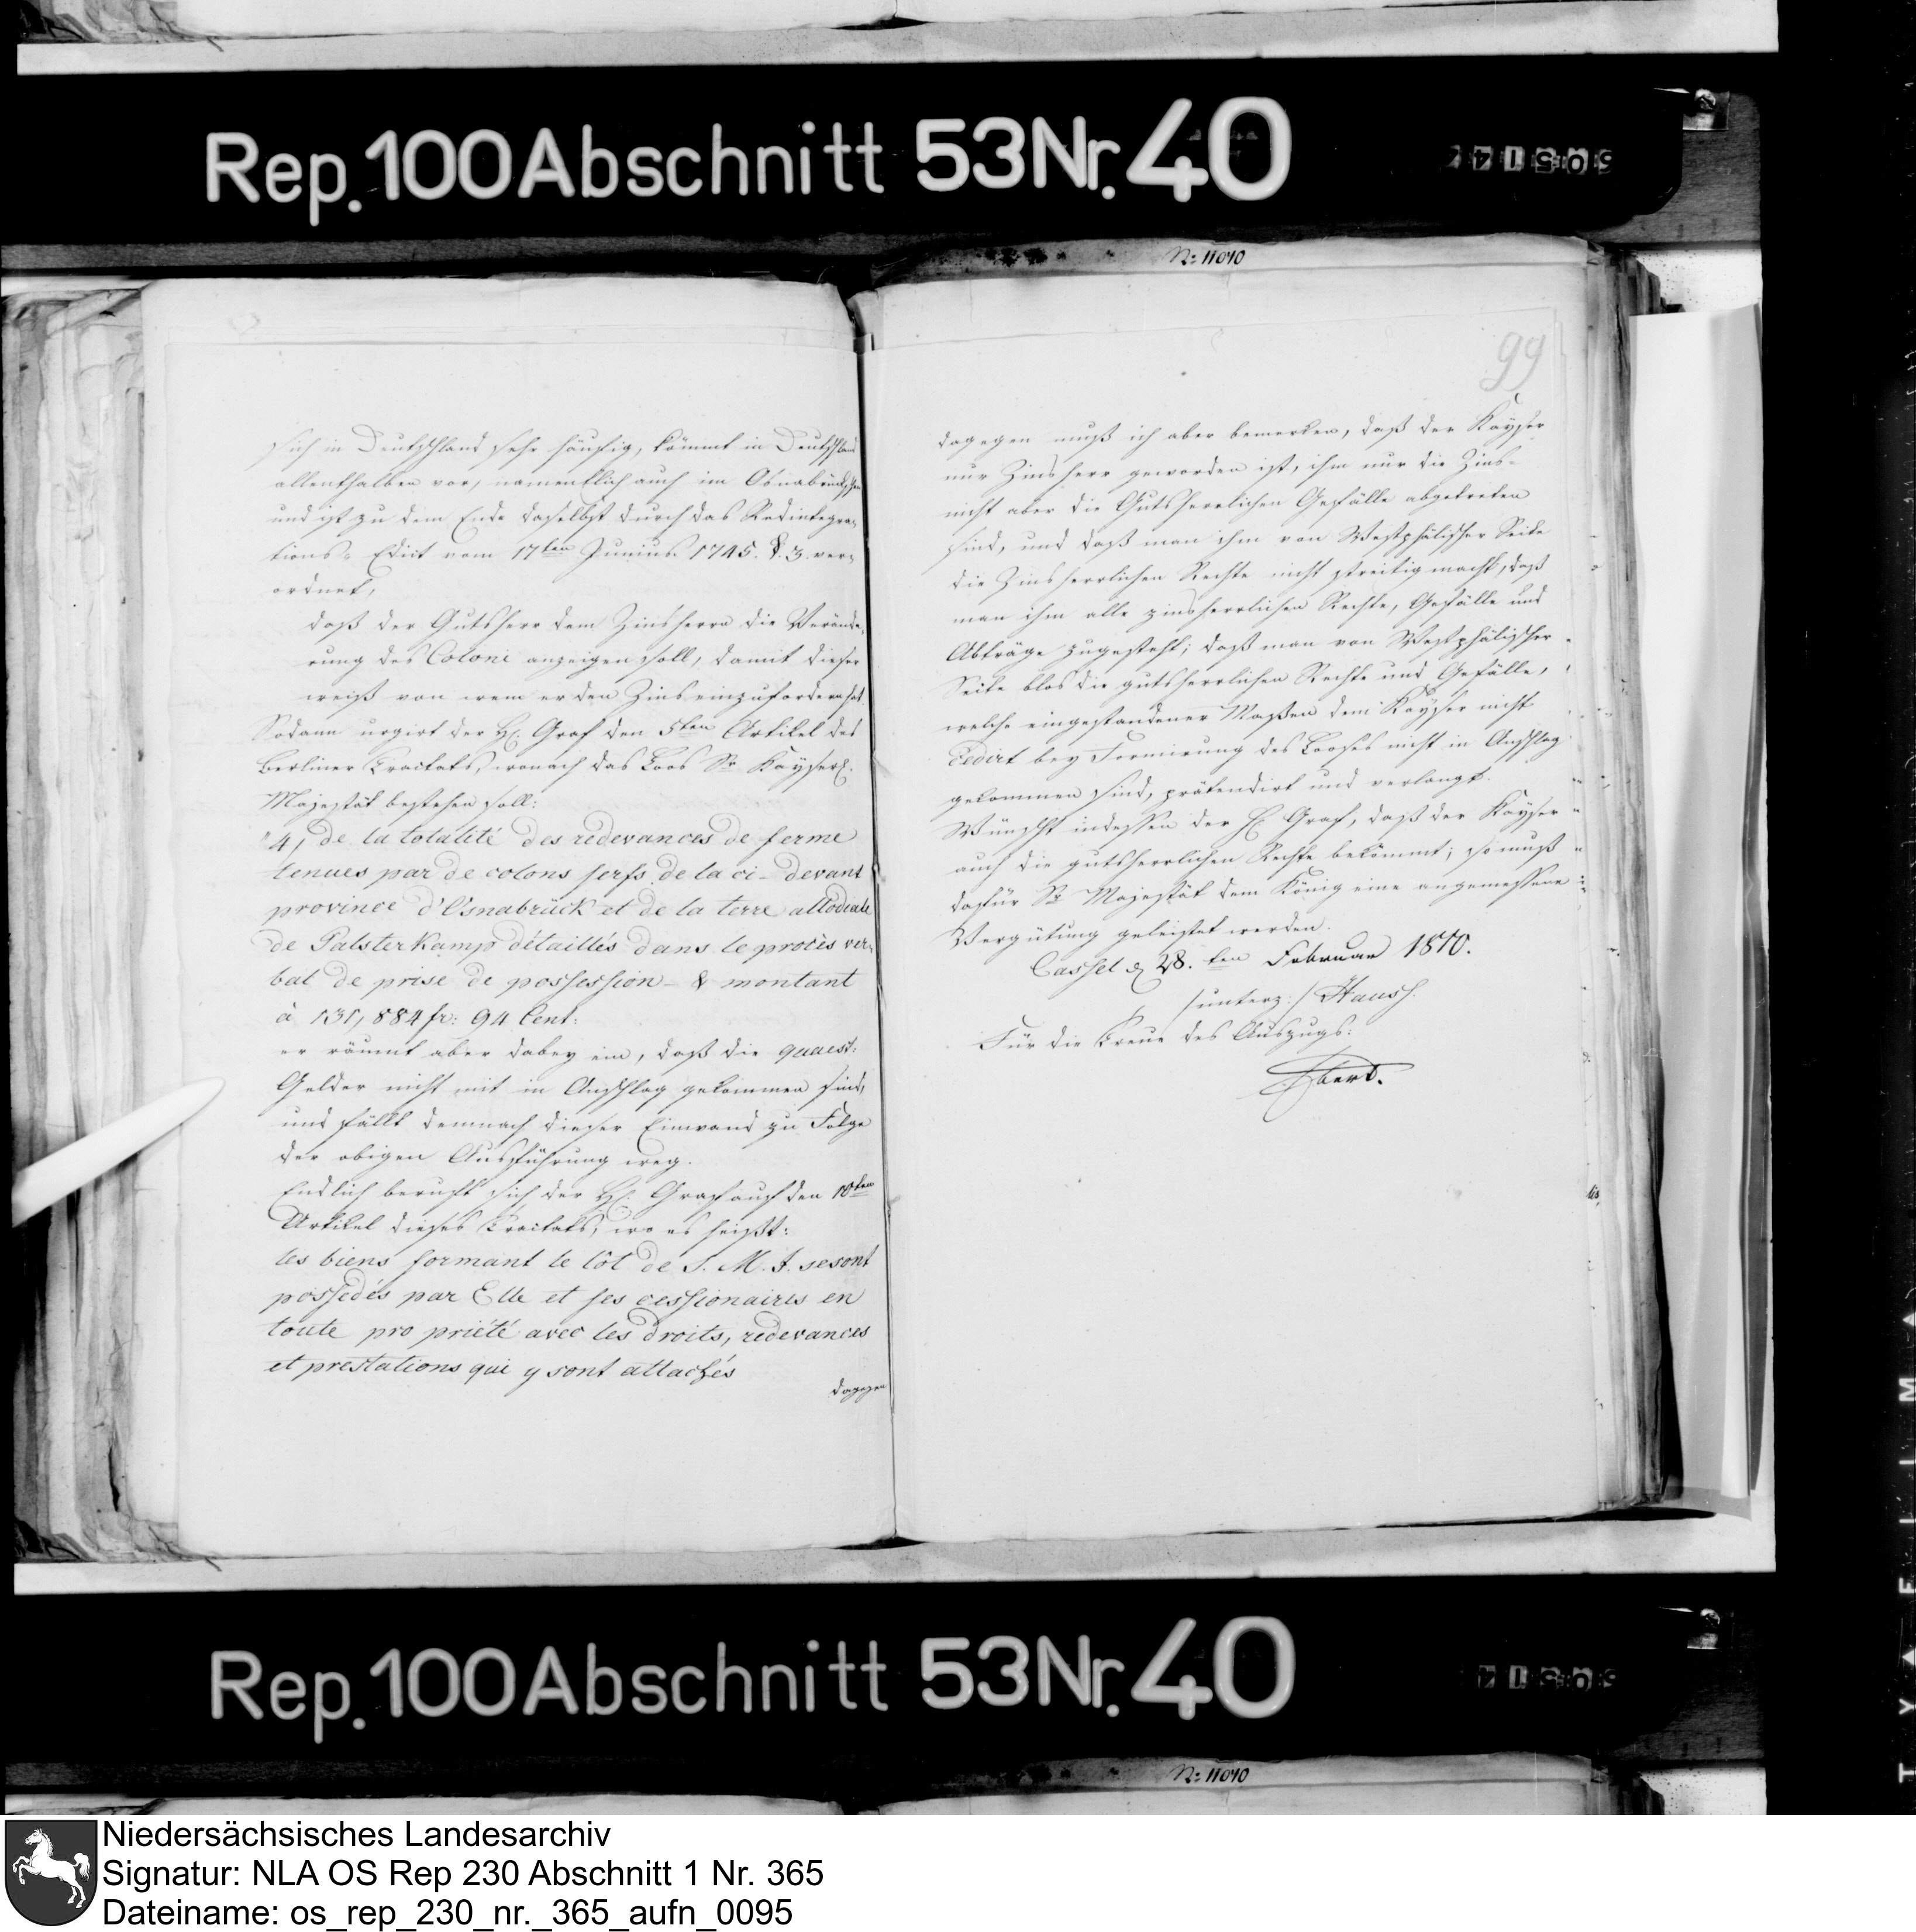 Rep. 100 Abschnitt 53 Nr. 40
N: 11040
99
sich in Deutschland sehr häufig, kömmt in Deutschland
allenthalben vor, namentlich auch im Osnabrückschen
und ist zu dem Ende daselbst durch das Redintegra-
tions-Edict vom 17ten Junius 1745. §. 3. ver-
ordnet,
daß der Gutsherr dem Zinsherrn die Verände-
rung des Coloni anzeigen soll, damit dieser
weiß von wem er den Zins einzufordern hat.
Sodann urgirt der H. Graf den 5ten Artikel des
Berliner Tractats, wonach das Loos Sr Kayserl.
Majestät bestehen soll:
"4, de la totalité des redevances de ferme
tenues par de colons serfs de la ci-devant
province d'Osnabrück et de la terre allodiale
de Palsterkamp détaillés dans le procès ver-
bal de prise de possession - & montant
à 131,884 fr: 94 Cent:
er räumt aber dabey ein, daß die quaest:
Gelder nicht mit in Anschlag gekommen sind,
und fällt demnach dieser Einwand zu Folge
der obigen Ausführung weg.
Endlich beruft sich der H. Graf auf den 10ten
Artikel dieses Tractats, wo es heißt:
les biens formant le lôt de S. M. I. seront
possedés par Elle et ses cessionaires en
toute propriété avec les droits, redevances
et prestations qui y sont attachés
dagegen
dagegen muß ich aber bemerken, daß der Kayser
nur Zinsherr geworden ist, ihm nur die Zins-
nicht aber die Gutsherrlichen Gefälle abgetreten
sind, und daß man ihm von Westphälischer Seite
die Zinsherrlichen Rechte nicht streitig macht, daß
man ihm alle zinsherrlichen Rechte, Gefälle und
Abträge zugesteht; daß man von Westphälischer
Seite blos die gutsherrlichen Rechte und Gefälle,
welche eingestandener Maßen dem Kayser nicht
cedirt bey Formirung des Looses nicht in Anschlag
gekommen sind, prätendirt und verlangt.
Wünscht indessen der H. Graf, daß der Kayser
auch die gutsherrlichen Rechte bekömmt; so muß
dafür Sr Majestät dem König eine angemessene
Vergütung geleistet werden.
Cassel d. 28.ten Februar 1810.
/unterz:/ Haus
Für die Treue des Auszugs:
Ebert.
Rep. 100 Abschnitt 53 Nr. 40
N: 11040
Niedersächsisches Landesarchiv
Signatur: NLA OS Rep 230 Abschnitt 1 Nr. 365
Dateiname: os_rep_230_nr._365_aufn_0095